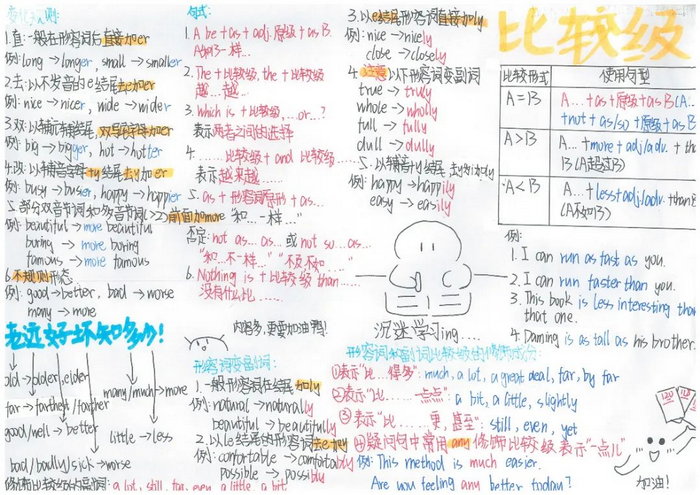 变化规则:
1.直:一般在形容词后直接加er
例:long→longer, small→smaller
2.去:以不发音的e结尾去e加er
例:nice→nicer, wide→wider
3.双:以辅元辅结尾,双写字母加er
例:big→bigger, hot→hotter
4.改:以辅音字母+y结尾去y加er
例:busy→busier, happy→happier
5.部分双音节词和多音节词→前面加more
例:beautiful→more beautiful
buring→more boring
famous→more famous
6.不规则形态
例:good→better, bad→worse
many→more
老远好坏知多少!
old→older,elder
many/much→more
far→farthest/farther
good/well→better
little→less
bad/badly/sick→worse
修饰比较级的副词: a lot, still, far, even, a little, a bit
句式:
1. A be+as+adj.原级+as B.
A和B一样…
2. The+比较级, the+比较级
越…越…
3. Which is+比较级,…or…?
表示两者之间的选择
4.……比较级 and 比较级……
表示越来越……
5. as+形容词原形+as…
"和…一样…"
否定: not as…as…或 not so…as…
"和…不一样…" "不及不如……"
6. Nothing is+比较级 than……
没有什么比……
内容多,更要加油鸭!
形容词变副词:
1.一般形容词在结尾加ly
例:natural→naturally
beautiful→beautifully
2.以le结尾的形容词去e加y
例:comfortable→comfortably
possible→possibly
3.以e结尾形容词直接加ly
例:nice→nicely
close→closely
4.注意以下形容词变副词
true→truly
whole→wholly
full→fully
dull→dully
5.以辅音+y结尾 去y加ily
例:happy→happily
easy→easily
沉迷学习ing……
比较级
比较形式 使用句型
A=B A…+as+原级+as B(A:
+not+as/so+原级+as B
A>B A…+more+adj/adv.+th
B(A超过B)
A<B A…+less+adj/adv. than
(A不如B)
例:
1. I can run as fast as you.
2. I can run faster than you.
3. This book is less interesting tha
that one.
4. Daming is as tall as his brother.
形容词和副词比较级的修饰成分:
①表示"比…得多": much, a lot, a great deal, far, by far
②表示"比……一点点": a bit, a little, slightly
③表示"比……更,甚至": still, even, yet
④疑问句中常用any修饰比较级表示"一点儿"
例: This method is much easier.
Are you feeling any better today?
加油!